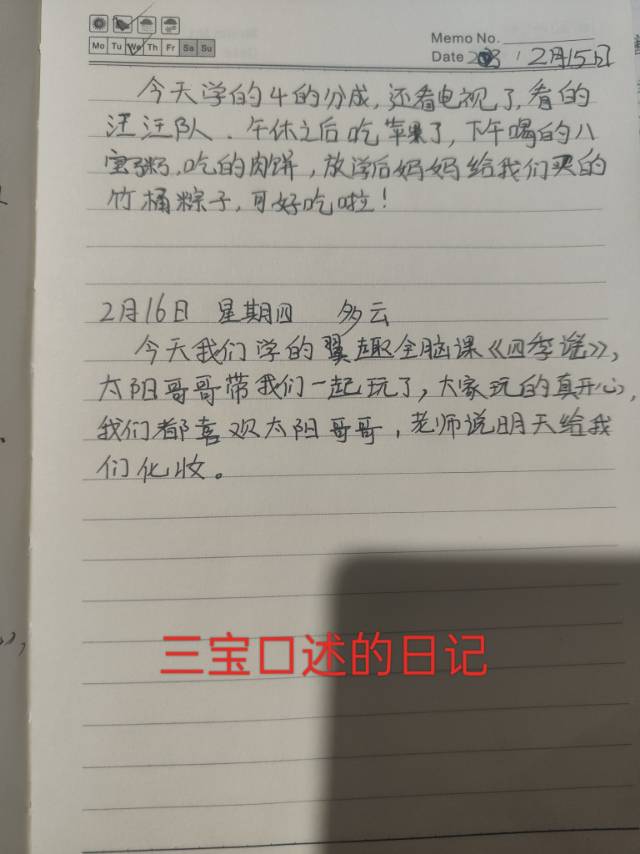 Memo No.
Mo Tu We Th Fr Sa Su
Date 2023 / 2月15日
今天学的4的分成,还看电视了,看的
汪汪队.午休之后吃苹果了,下午喝的八
宝粥,吃的肉饼,放学后妈妈给我们买的
竹桶粽子,可好吃啦!
2月16日 星期四 多云
今天我们学的翼趣全脑课《四季谣》,
太阳哥哥带我们一起玩了,大家玩的真开心,
我们都喜欢太阳哥哥,老师说明天给我
们化妆。
三宝口述的日记